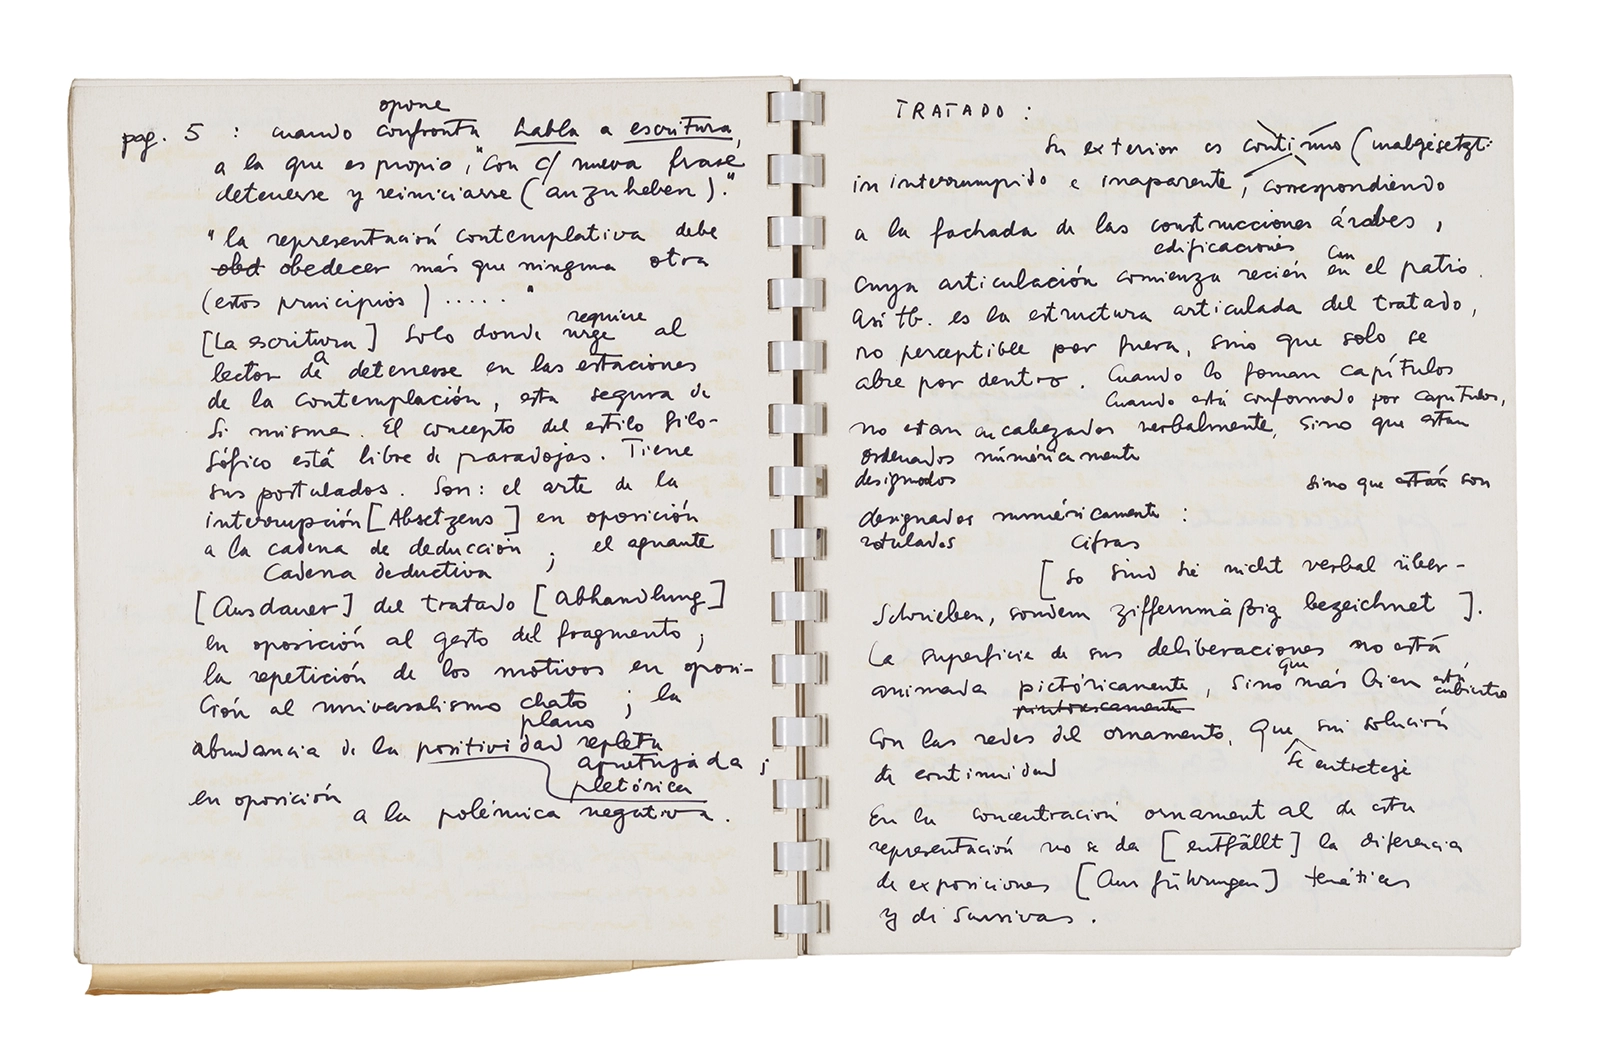 opone
pag. 5 : cuando confronta habla a escritura,
a la que es propio, "con c/ nueva frase
detenerse y reiniciarse (anzuheben)."
"la representación contemplativa debe
obed obedecer más que ninguna otra
(estos principios) ..... "
requiere
[La escritura] Solo donde urge al
lector de a detenerse en las estaciones
de la contemplación, esta segura de
si misma. El concepto del estilo filo-
sófico está libre de paradojas. Tiene
sus postulados. Son: el arte de la
interrupción [Absetzens] en oposición
a la cadena de deducción ; el aguante
cadena deductiva
[Ausdauer] del tratado [Abhandlung]
en oposición al gesto del fragmento ;
la repetición de los motivos en oposi-
ción al universalismo chato ; la
plano
abundancia de la positividad repleta
apretujada ;
pletórica
en oposición a la polémica negativa.
TRATADO :
Su exterior es contínuo (
ininterrumpido e inaparente, correspondiendo
a la fachada de las construcciones árabes,
edificaciones con
cuya articulación comienza recién en el patio.
Así tb. es la estructura articulada del tratado,
no perceptible por fuera, sino que solo se
abre por dentro. Cuando lo forman capítulos
Cuando está conformado por capítulos,
no estan encabezados verbalmente, sino que estan
ordenados numéricamente
designados
sino que están son
designados numéricamente :
rotulados cifras
[so sind sie nicht verbal über-
schrieben, sondern ziffernmäßig bezeichnet ].
La superficie de sus deliberaciones no está
que está
animada pictóricamente, sino más bien cubierto
pintorescamente
con las redes del ornamento, que sin solución
se entreteje
de continuidad
En la concentración ornamental de esta
representación no se da [entfällt] la diferencia
de exposiciones [Ausführungen] temáticas
y discursivas.